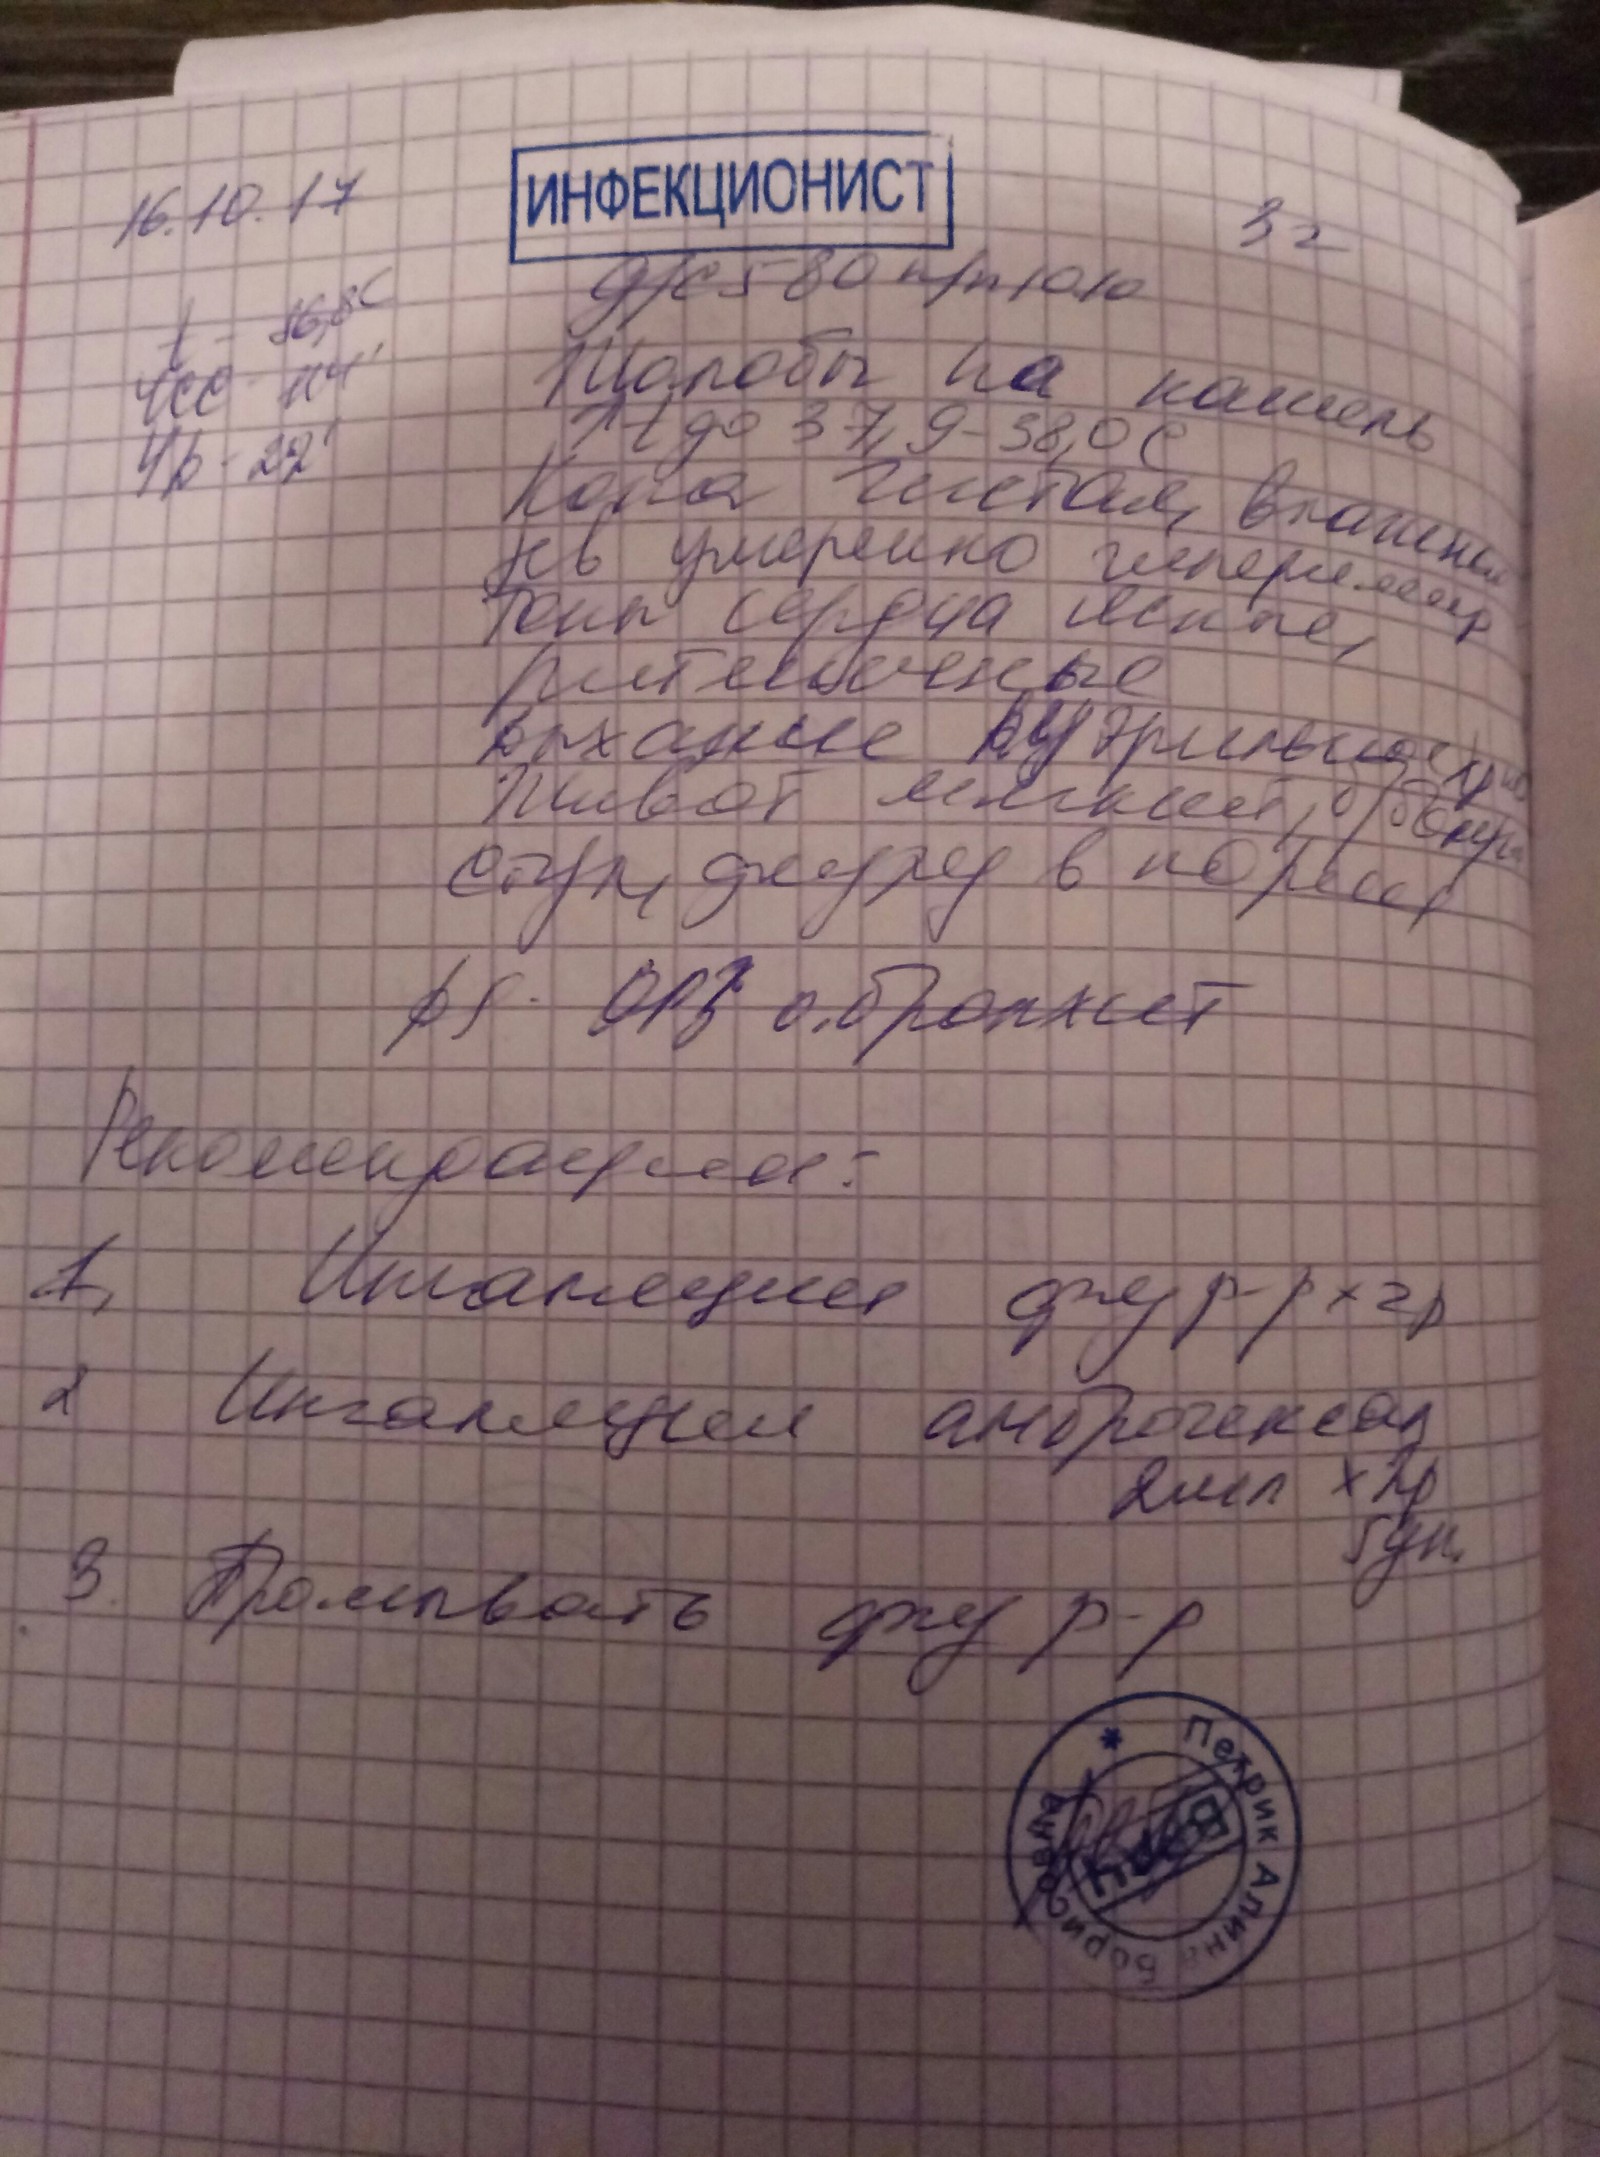 16.10.17
ИНФЕКЦИОНИСТ
3 г
t - 36,8С
д/с 580 п/п 1010
ЧСС - 114'
Жалобы на кашель
Чд - 22'
↑t до 37,9 - 38,0 С
Кожа чистая, влажная
зев умеренно гиперемир
Тоны сердца ясные,
ритмичные
дыхание везикулярное
Живот мягкий, б/болезн
стул, диурез в норме
DS: ОРЗ о. бронхит
Рекомендации:
1. Ингаляции физ р-р х 2р
2 Ингаляции амброгексал
2мл х 2р
5 дн.
3. Промывать физ р-р
Петрик Алина Борисовна *
ВРАЧ